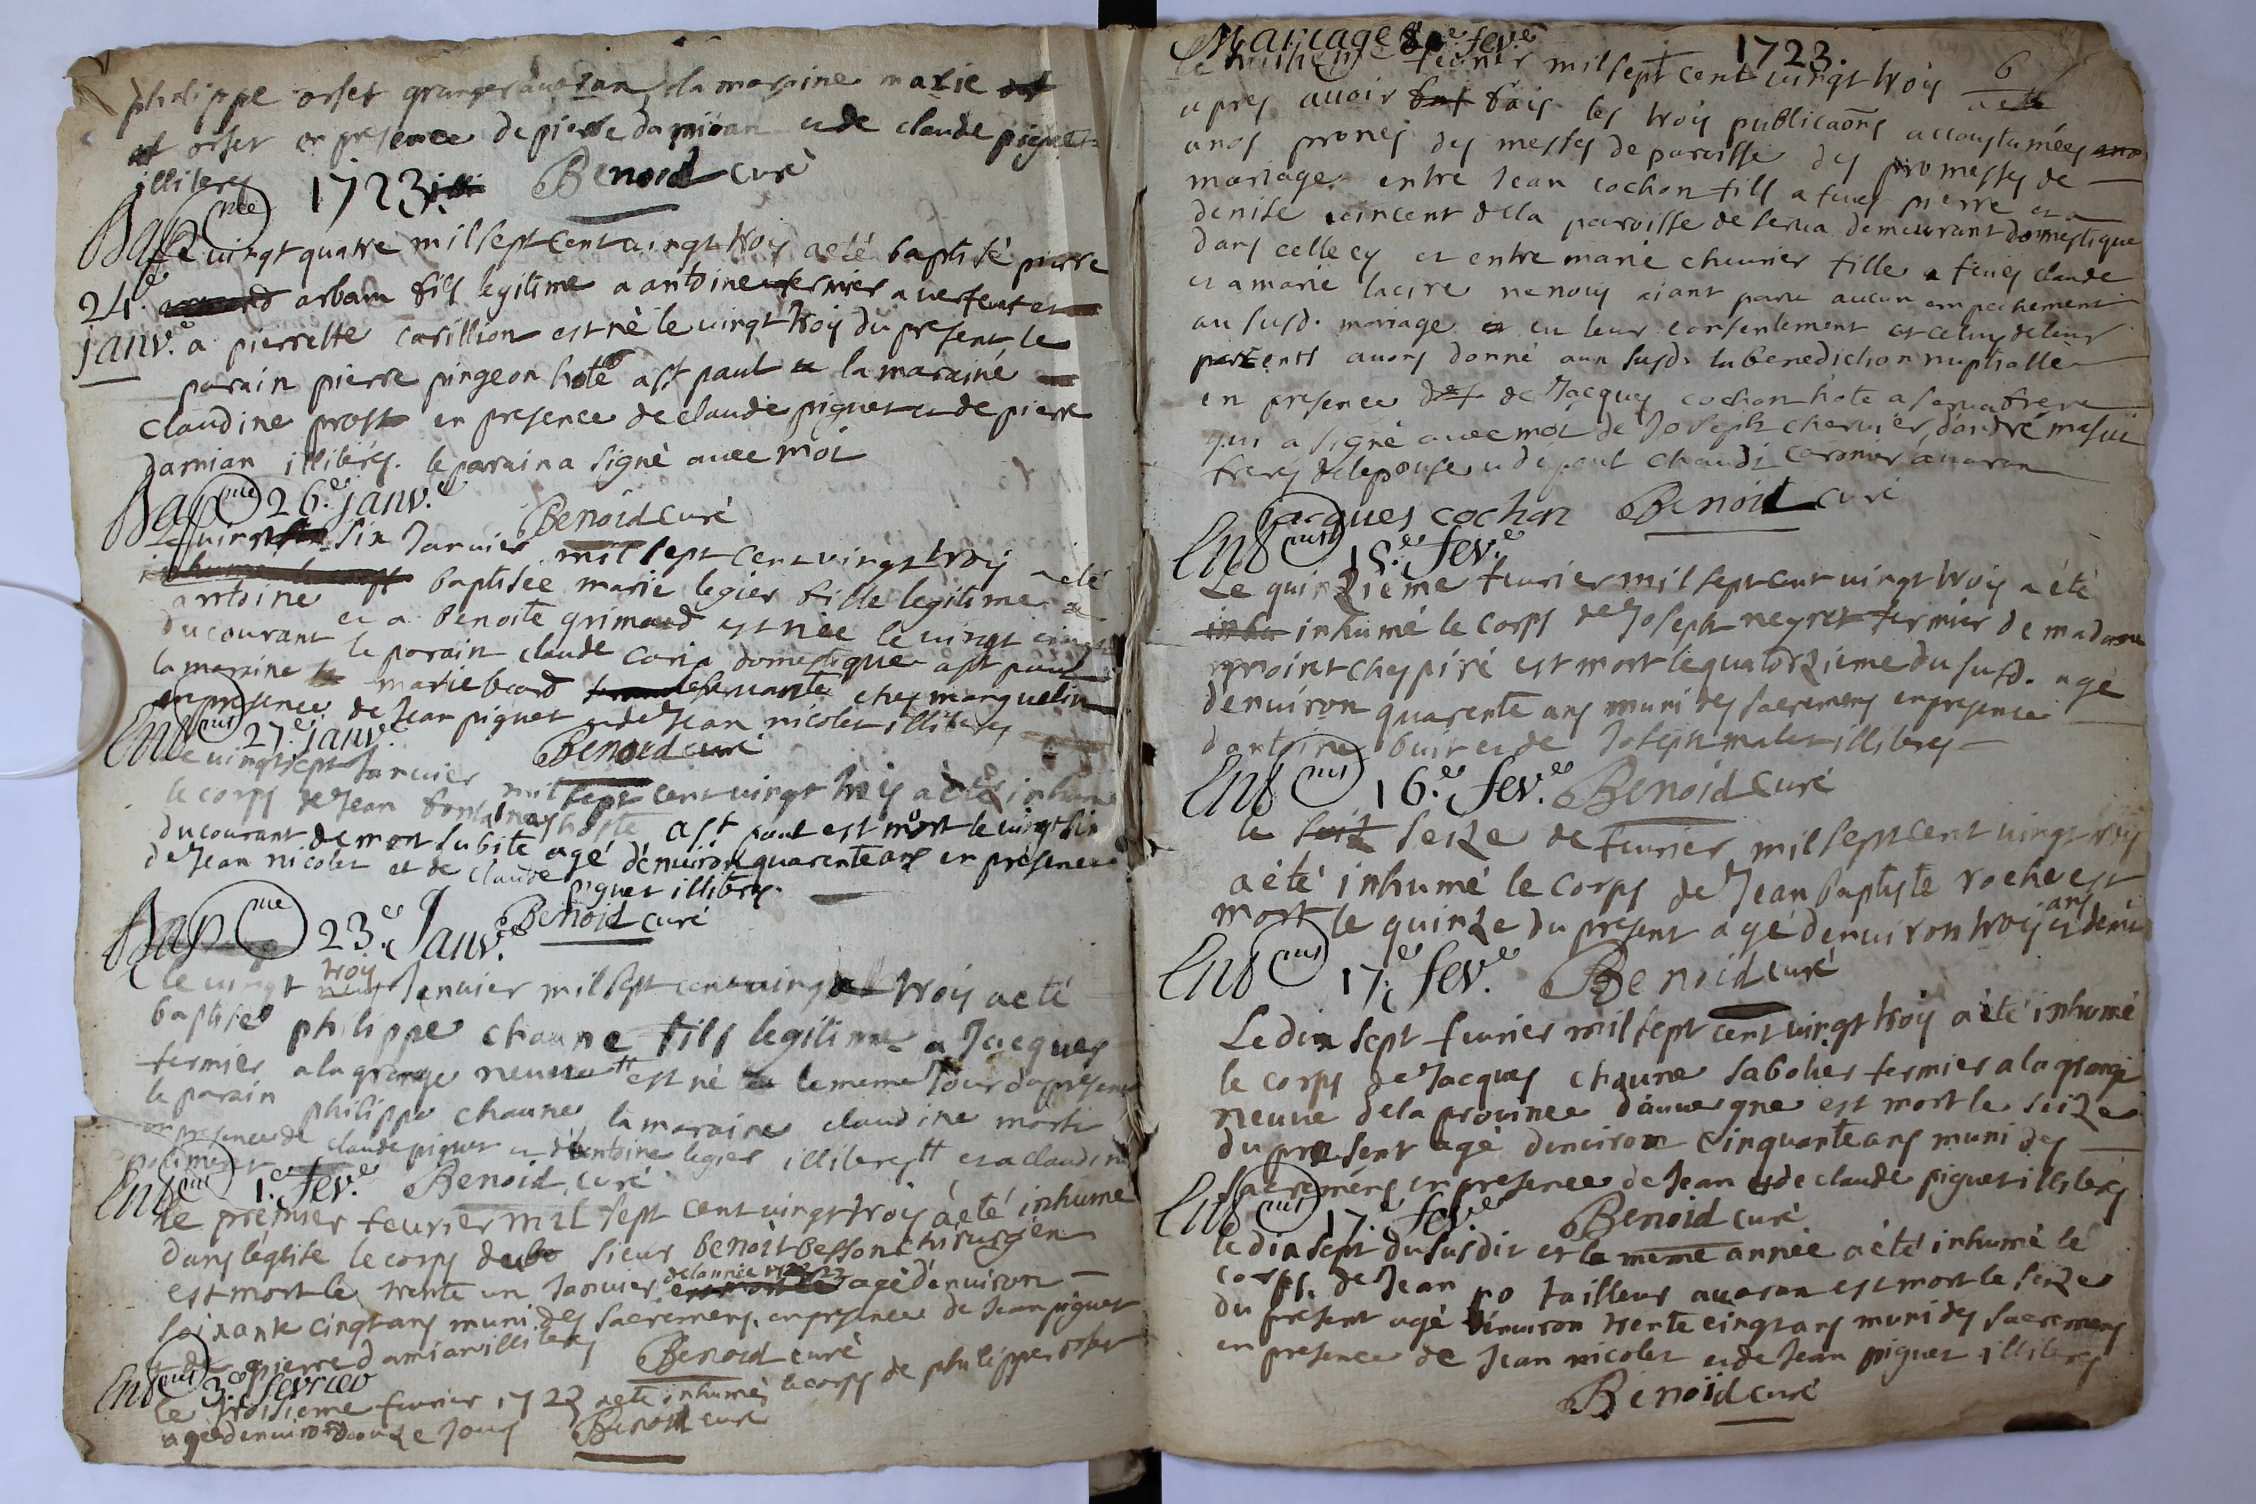 philippe orset granger a varan la maraine marie
et orset en presence de pierre damian et de claude piguet
illiteres
Benoid curé
1723
Bapme
Le vingt quatre mil sept cent vingt trois a eté baptisé pierre
24e arbam fils legitime a antoine fermier a verfeur et
janv.e a pierrette carillion est né le vingt trois du present le
parain pierre pingeon hote a st paul et la maraine
claudine prost en presence de claude piguet et de pierre
damian illiterés. le parain a signé avec moi
Bapme 26.e janv.e
Benoid curé
Le vingt six Janvier mil sept cent vingt trois a eté
baptisée marie legier fille legitime a
antoine et a benoite grimand est née le vingt cinq
du courant le parain claude caria domestique a st paul
la maraine marie beard servante chez marguelin
en presence de Jean piguet et de Jean nicolet illiteres
Entmt 27.e janv.e
Benoid curé
Le vingt sept Janvier mil sept cent vingt trois a eté inhumé
le corps de Jean fontanay hoste a st paul est mort le vingt six
du courant de mort subite agé d'environ quarente ans en presence
de Jean nicolet et de claude piguet illiteres.
Benoid curé
Bapme 23.e Janv.e
le vingt trois Janvier mil sept cent vingt trois a eté
baptisé philippe chaune fils legitime a Jacques
fermier a la grange neuve # est né le meme Jour d'apresent
le parain philippe chaune la maraine claudine morte
en presence de claude piguet et d'Antoine legier illiteres # et a claudine
Entmt 1.e fev.e
Benoid curé
le premier feuvrier mil sept cent vingt trois a eté inhumé
dans l'église le corps de sieur benoit besson chirurgien
est mort le trente un Janvier de lannée 1723 agé d'environ
soixante cinq ans muni des sacremens en presence de Jean piguet
et de pierre damian illiteres
Benoid curé
Entmt 3.e fevrier
le troisieme fevrier 1723 a eté inhumé le corps de philippe orset
agé d'environ douze Jours
Benoid curé
Mariage 8e fev.e
1723.
6
Le huitieme fevrier mil sept cent vingt trois
apres avoir fais les trois publicaõns accoustumées
a nos prones des messes de paroisse des promesses de
mariage entre Jean cochon fils a feus pierre et a
denise vincent de la paroisse de serva demeurant domestique
dans celle cy et entre marie chevrier fille a feus claude
et a marie lacire ne nous aiant paru aucun empechement
au susd. mariage et eu leur consentement et celuy de leurs
parents avons donné aux susds la benediction nuptialle
en presence de Jacques cochon hote a serva frere
qui a signé avec moi de Joseph chevrier, d'andré
freres de lepouse et de paul chaudi a varan
jacques cochon Benoid curé
Entmt 15.e fev.e
Le quinzième fevrier mil sept cent vingt trois a été
inhumé le corps de Joseph neyret fermier de madame
mort le quatorzieme du susd. agé
d'environ quarente ans muni des sacremens en presence
d'antoine buir et de Joseph malet illiteres
Entmt 16.e fev.e Benoid curé
le seize de fevrier mil sept cent vingt trois
a été inhumé le corps de Jean baptiste roche est
mort le quinze du present agé d'environ trois ans et demi
Entmt 17.e fev.e Benoid curé
Le dix sept fevrier mil sept cent vingt trois a été inhumé
le corps de Jacques chaune sabotier fermier a la grange
neuve de la province d'auvergne est mort le seize
du present agé d'environ cinquante ans muni des
sacremens en presence de Jean et de claude piguet illiteres
Entmt 17.e fev.e Benoid curé
le dix sept du susdit et la meme année a été inhumé le
corps de Jean po tailleur a varan est mort le seize
du present agé d'environ trente cinq ans muni des sacremens
en presence de Jean nicolet et de Jean piguet illiteres
Benoid curé